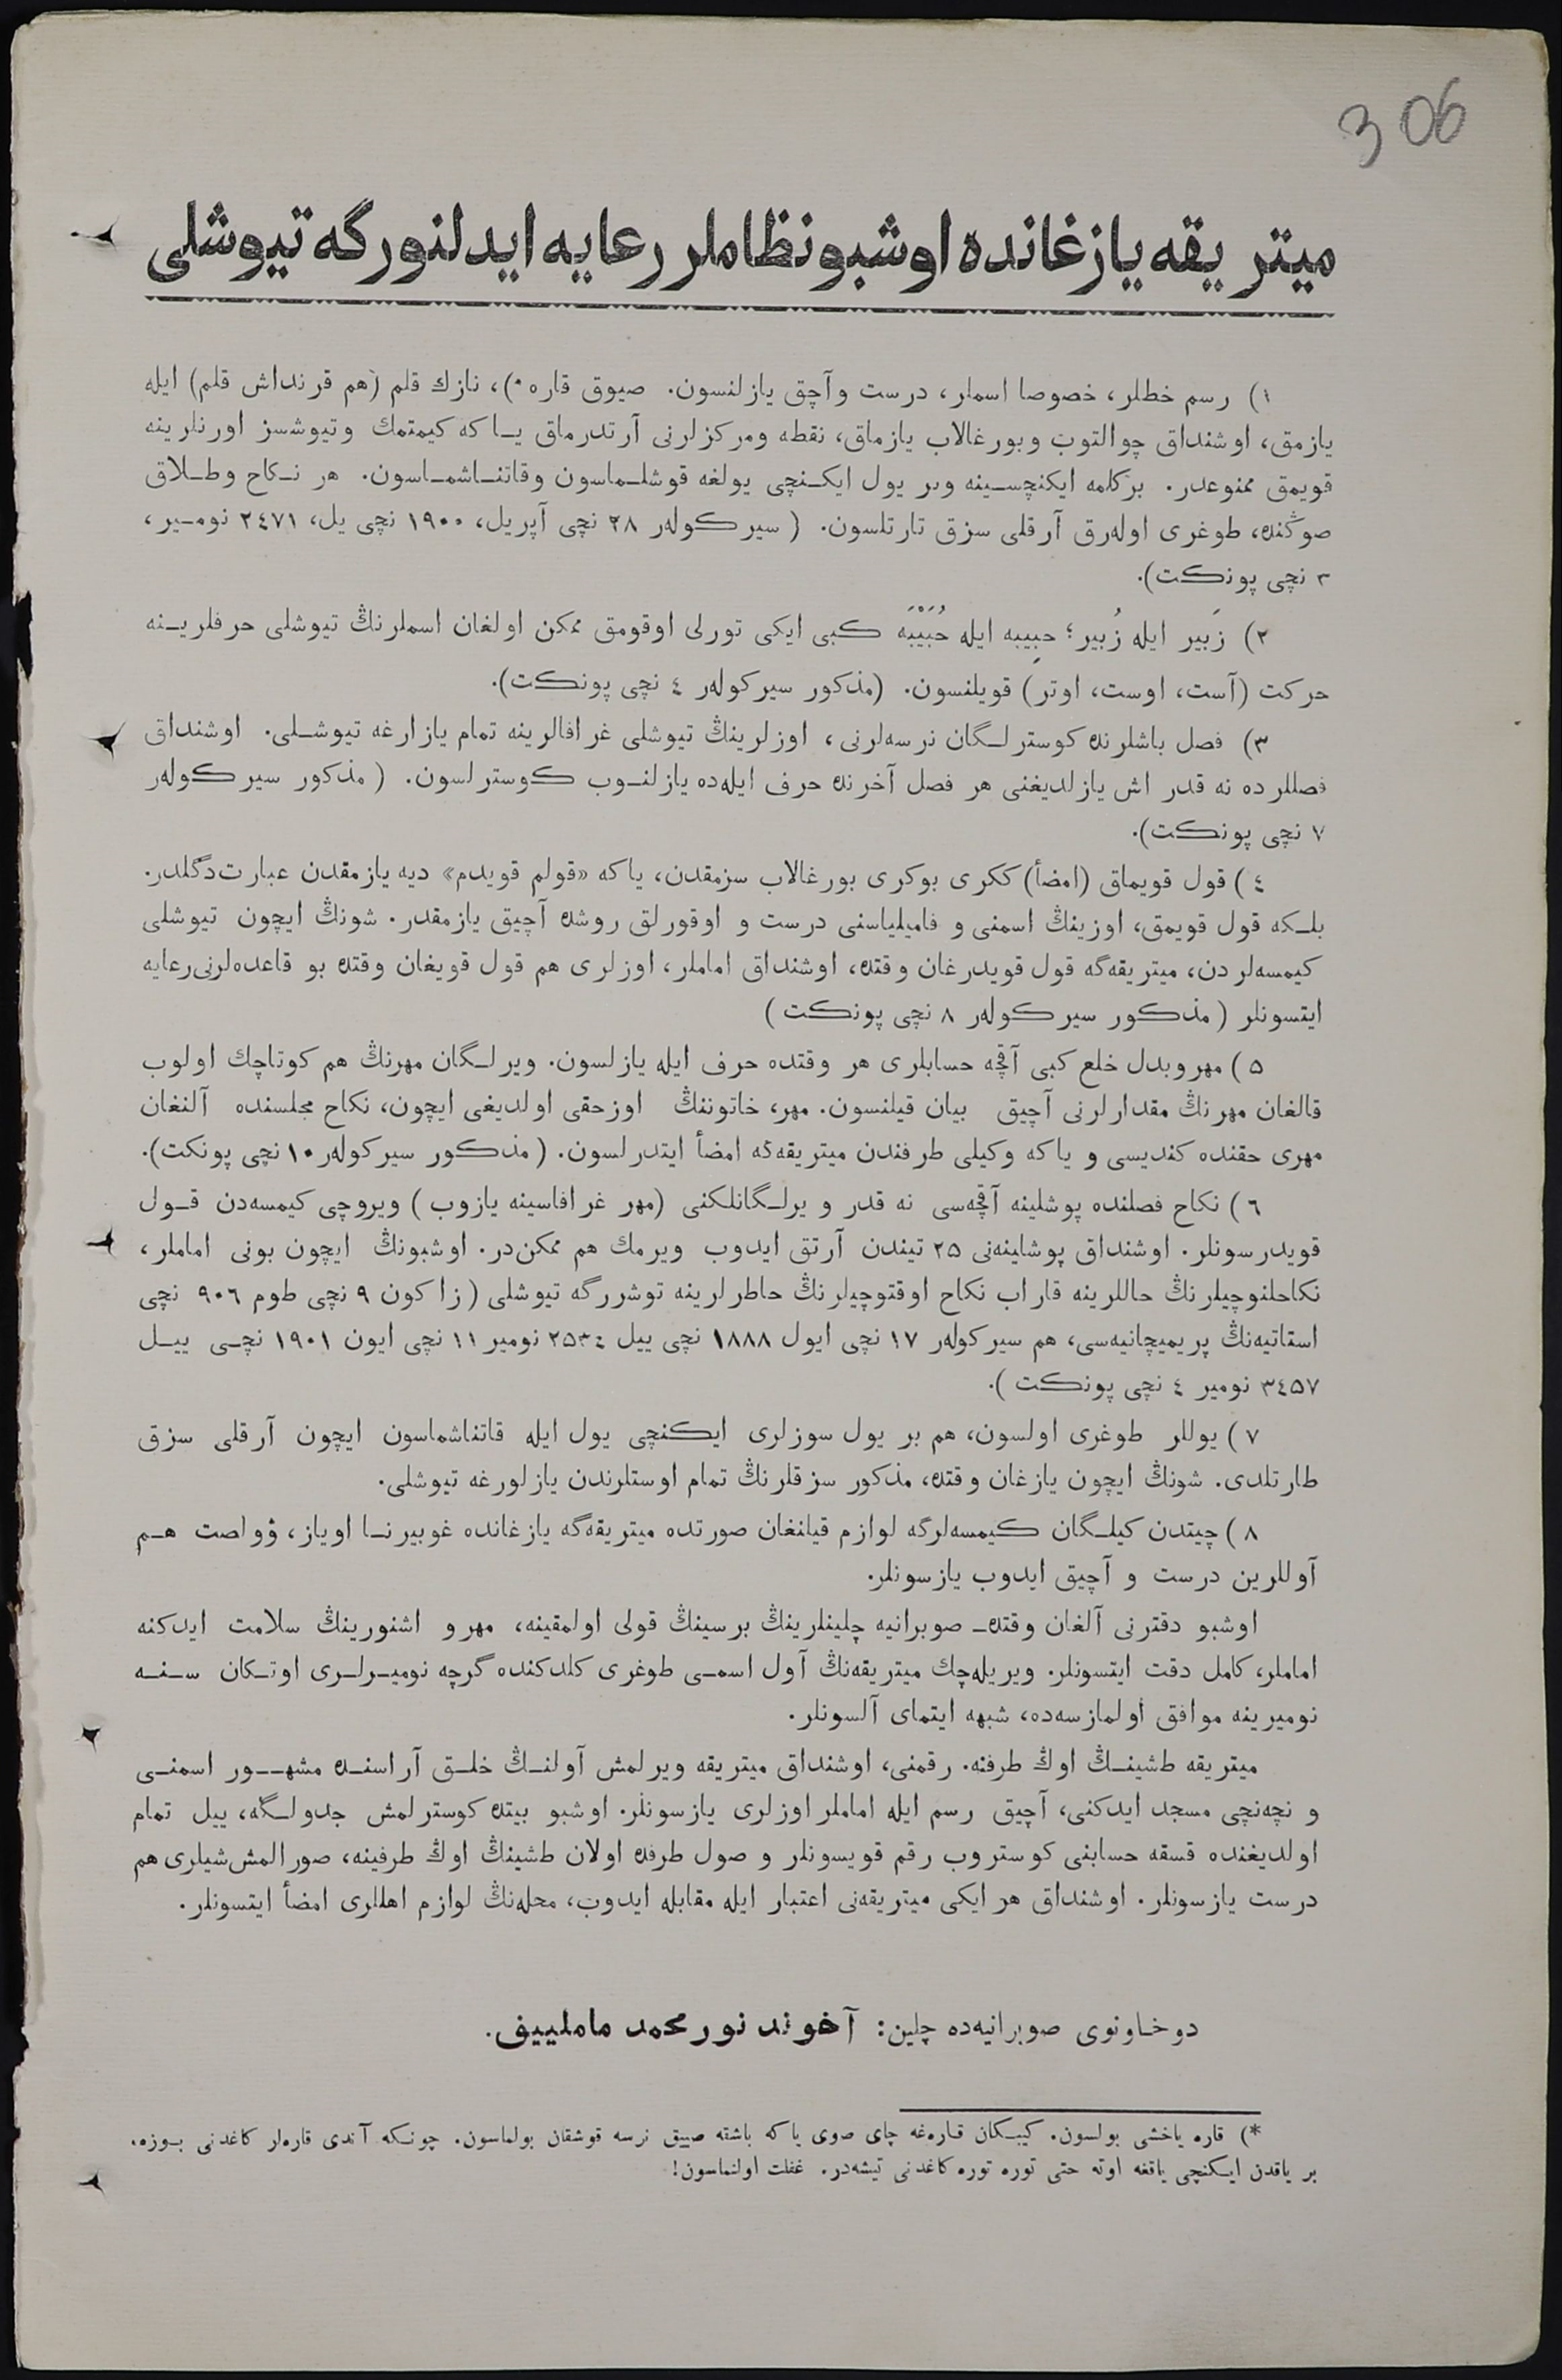 306
ميتريقه يازغانده اوشبو نظاملر رعايه ايدلنورگه تيوشلی
١) رسم خطلر، خصوصا اسملر، درست وآچق يازلنسون. صيوق قاره *)، نازك قلم (هم قرنداش قلم) ايله
يازمق، اوشنداق چوالتوب وبورغالاب يازماق، نقطه ومركزلرنی آرتدرماق يــاكه كيمتمك وتيوشسز اورنلرينه
قويمق ممنوعدر. بركلمه ايكنچسـينه وبر يول ايكـنچی يولغه قوشلـماسون وقاتنـاشمـاسون. هر نـكاح وطـلاق
صوڭنده، طوغری اولەرق آرقلی سزق تارتلسون. (سيركولەر ٢٨ نچی آپريل، ١٩٠٠ نچی يل، ٢٤٧١ نومـير،
٣ نچی پونكت).
٢) زَبير ايله زُبير؛ حبِيبه ايله حُبَيْبَه كبی ايكی تورلی اوقومق ممكن اولغان اسملرنڭ تيوشلی حرفلريـنه
حركت (آست، اوست، اوتر) قويلنسون. (مذكور سيركولەر ٤ نچی پونكت).
٣) فصل باشلرنده كوسترلـگان نرسەلرنی، اوزلرينڭ تيوشلی غرافالرينه تمام يازارغه تيوشـلی. اوشنداق
فصللرده نه قدر اش يازلديغنی هر فصل آخرنده حرف ايلەده يازلنـوب كوسترلسون. (مذكور سيركولەر
٧ نچی پونكت).
٤) قول قويماق (امضأ) ككری بوكری بورغالاب سزمقدن، ياكه «قولم قويدم» ديه يازمقدن عبارت دگلدر.
بلـكه قول قويمق، اوزينڭ اسمنی و فاميلياسنی درست و اوقورلق روشده آچيق يازمقدر. شونڭ ايچون تيوشلی
كيمسەلردن، ميتريقەگه قول قويدرغان وقتده، اوشنداق اماملر، اوزلری هم قول قويغان وقتده بو قاعدەلرنی رعايه
ايتسونلر (مذكور سيركولەر ٨ نچی پونكت)
۵) مهر وبدل خلع كبی آقچه حسابلری هر وقتده حرف ايله يازلسون. ويرلـگان مهرنڭ هم كوتاچك اولوب
قالغان مهرنڭ مقدارلرنی آچيق بيان قيلنسون. مهر، خاتوننڭ اوزحقی اولديغی ايچون، نكاح مجلسنده آلنغان
مهری حقنده كنديسی و ياكه وكيلی طرفندن ميتريقەگه امضأ ايتدرلسون. (مذكور سيركولەر ١٠ نچی پونكت).
٦) نكاح فصلنده پوشلينه آقچەسی نه قدر ويرلـگانلكنی (مهر غرافاسينه يازوب) ويروچی كيمسەدن قـول
قويدرسونلر. اوشنداق پوشلينەنی ٢۵ تيندن آرتق ايدوب ويرمك هم ممكن در. اوشبونڭ ايچون بونی اماملر،
نكاحلنوچيلرنڭ حاللرينه قاراب نكاح اوقتوچيلرنڭ خاطرلرينه توشررگه تيوشلی (زاكون ٩ نچی طوم ٩٠٦ نچی
استاتيەنڭ پريميچانيەسی، هم سيركولەر ١٧ نچی ايول ١٨٨٨ نچی ييل ٢۵٣٤ نومير ١١ نچی ايون ١٩٠١ نچـی ييـل
٣٤۵٧ نومير ٤ نچی پونكت).
٧) يوللر طوغری اولسون، هم بر يول سوزلری ايكنچی يول ايله قاتناشماسون ايچون آرقلی سزق
طارتلدی. شونڭ ايچون يازغان وقتده، مذكور سزقلرنڭ تمام اوستلرندن يازلورغه تيوشلی.
٨) چيتدن كيلـگان كيمسەلرگه لوازم قيلنغان صورتده ميتريقەگه يازغانده غوبيرنـا اوياز، ؤواصت هـم
آوللرين درست و آچيق ايدوب يازسونلر.
اوشبو دفترنی آلغان وقتده صوبرانيه چلينلرينڭ برسينڭ قولی اولمقينه، مهر و اشنورينڭ سلامت ايدكنه
اماملر، كامل دقت ايتسونلر. ويريلەچك ميتريقەنڭ آول اسمـی طوغری كلدكنده گرچه نوميـرلـری اوتـكان سـنـه
نوميرينه موافق اولمازسەده، شبهه ايتمای آلسونلر.
ميتريقه طشينـڭ اوڭ طرفنه. رقمنی، اوشنداق ميتريقه ويرلمش آولنـڭ خلـق آراسنـده مشهــور اسمنـی
و نچەنچی مسجد ايدكنی، آچيق رسم ايله اماملر اوزلری يازسونلر. اوشبو بيتده كوسترلمش جدولـگه، ييل تمام
اولديغنده قسقه حسابنی كوستروب رقم قويسونلر و صول طرفده اولان طشينڭ اوڭ طرفينه، صورالمش شيلری هم
درست يازسونلر. اوشنداق هر ايكی ميتريقەنی اعتبار ايله مقابله ايدوب، محلەنڭ لوازم اهللری امضأ ايتسونلر.
دوخاونوی صوبرانيەده چلين: آخوند نورمحمد ماملييف.
*) قاره ياخشی بولسون. كيبـكان قارەغه چای صوی ياكه باشقه صييق نرسه قوشقان بولماسون. چونـكه آندی قارەلر كاغدنی بـوزه،
بر ياقدن ايـكنچی ياقغه اوته حتی توره توره كاغدنی تيشەدر. غفلت اولنماسون!